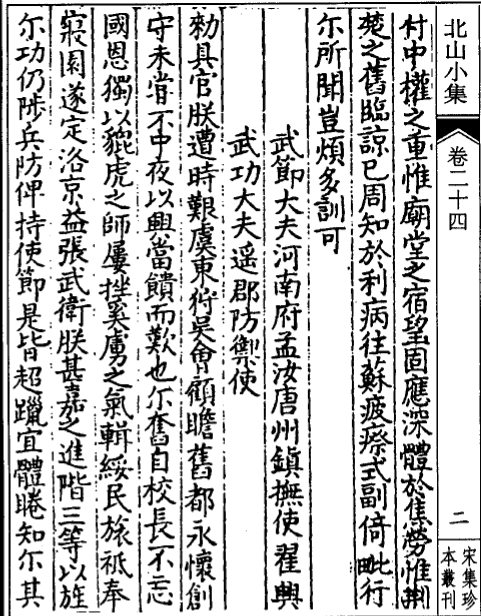 北山小集
卷二十四
二
宋集珍
本叢刊
付中權之重惟廟堂之宿望固應深體於焦勞惟荆
楚之舊臨諒已周知於利病往蘇疲瘵式副倚毗行
尔所聞豈煩多訓可
武節大夫河南府孟汝唐州鎮撫使翟興
武功大夫遥郡防禦使
勑具官朕遭時艱虞東狩吳會顧瞻舊都永懷創
守未嘗不中夜以興當饋而歎也尔奮自校長不忘
國恩獨以貔虎之師屢挫奚虜之氣輯綏民旅祗奉
寢園遂定洛京益張武衛朕甚嘉之進階三等以旌
尔功仍陟兵防俾持使節是皆超躐宜體睠知尔其